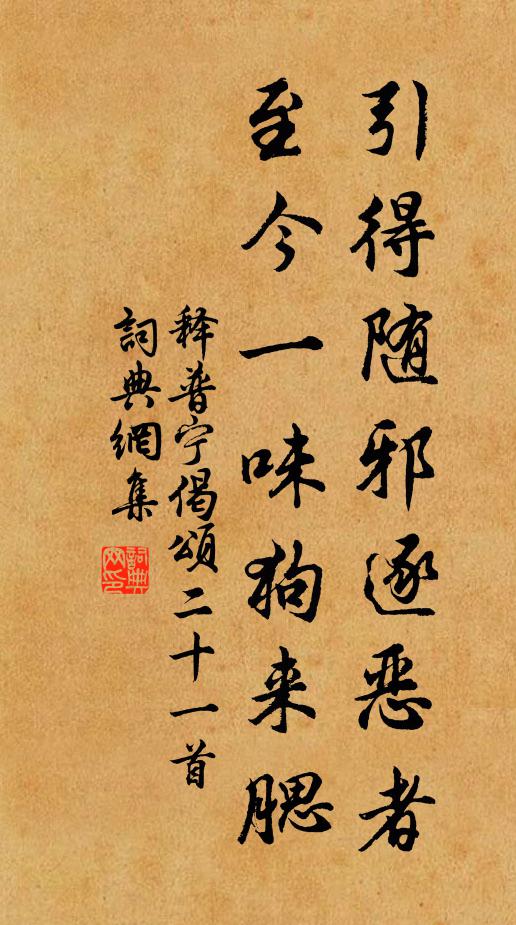 引得随邪逐恶者
至今一味狗来腮
释普宁偈颂二十一首
詞典網集
詞典網印